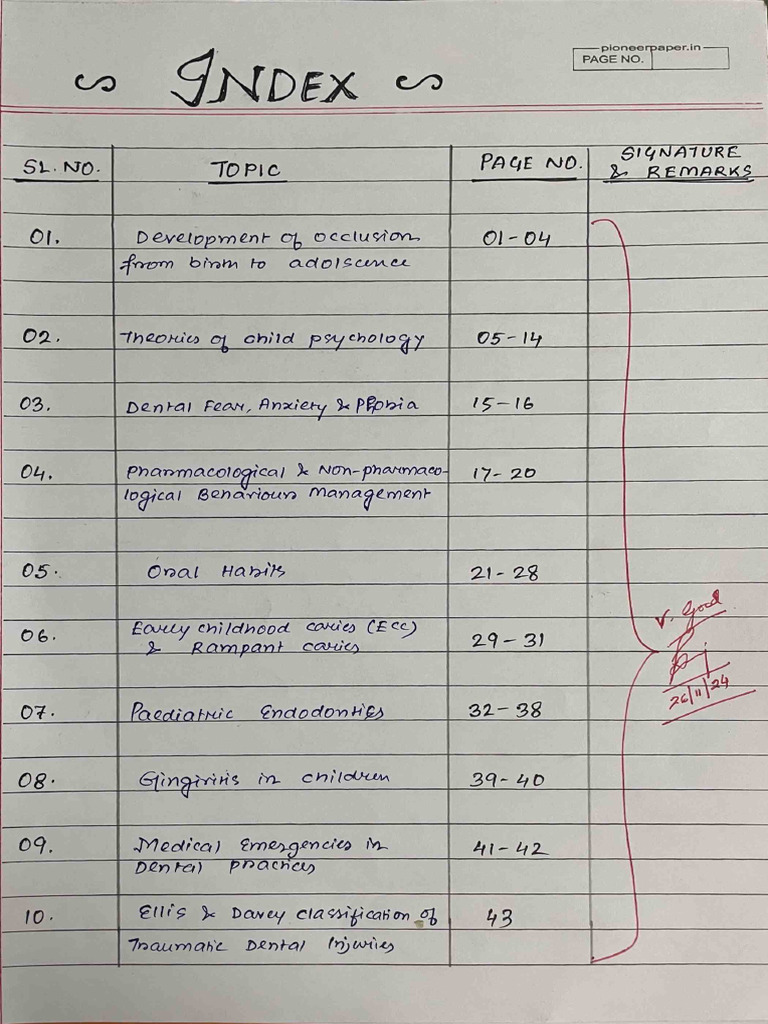 pioneerpaper.in
PAGE NO.
INDEX
SL. NO. TOPIC PAGE NO. SIGNATURE
& REMARKS
01. Development of occlusion 01-04
from birth to adolscence
02. Theories of child psychology 05-14
03. Dental Fear, Anxiety & Phobia 15-16
04. Pharmacological & Non-pharmaco- 17-20
logical Behaviour Management
05. Oral Habits 21-28
06. Early childhood caries (ECC) 29-31
& Rampant caries
V. Good
26/11/24
07. Paediatric Endodontics 32-38
08. Gingivitis in children 39-40
09. Medical Emergencies in 41-42
Dental practices
10. Ellis & Davey classification of 43
Traumatic Dental Injuries